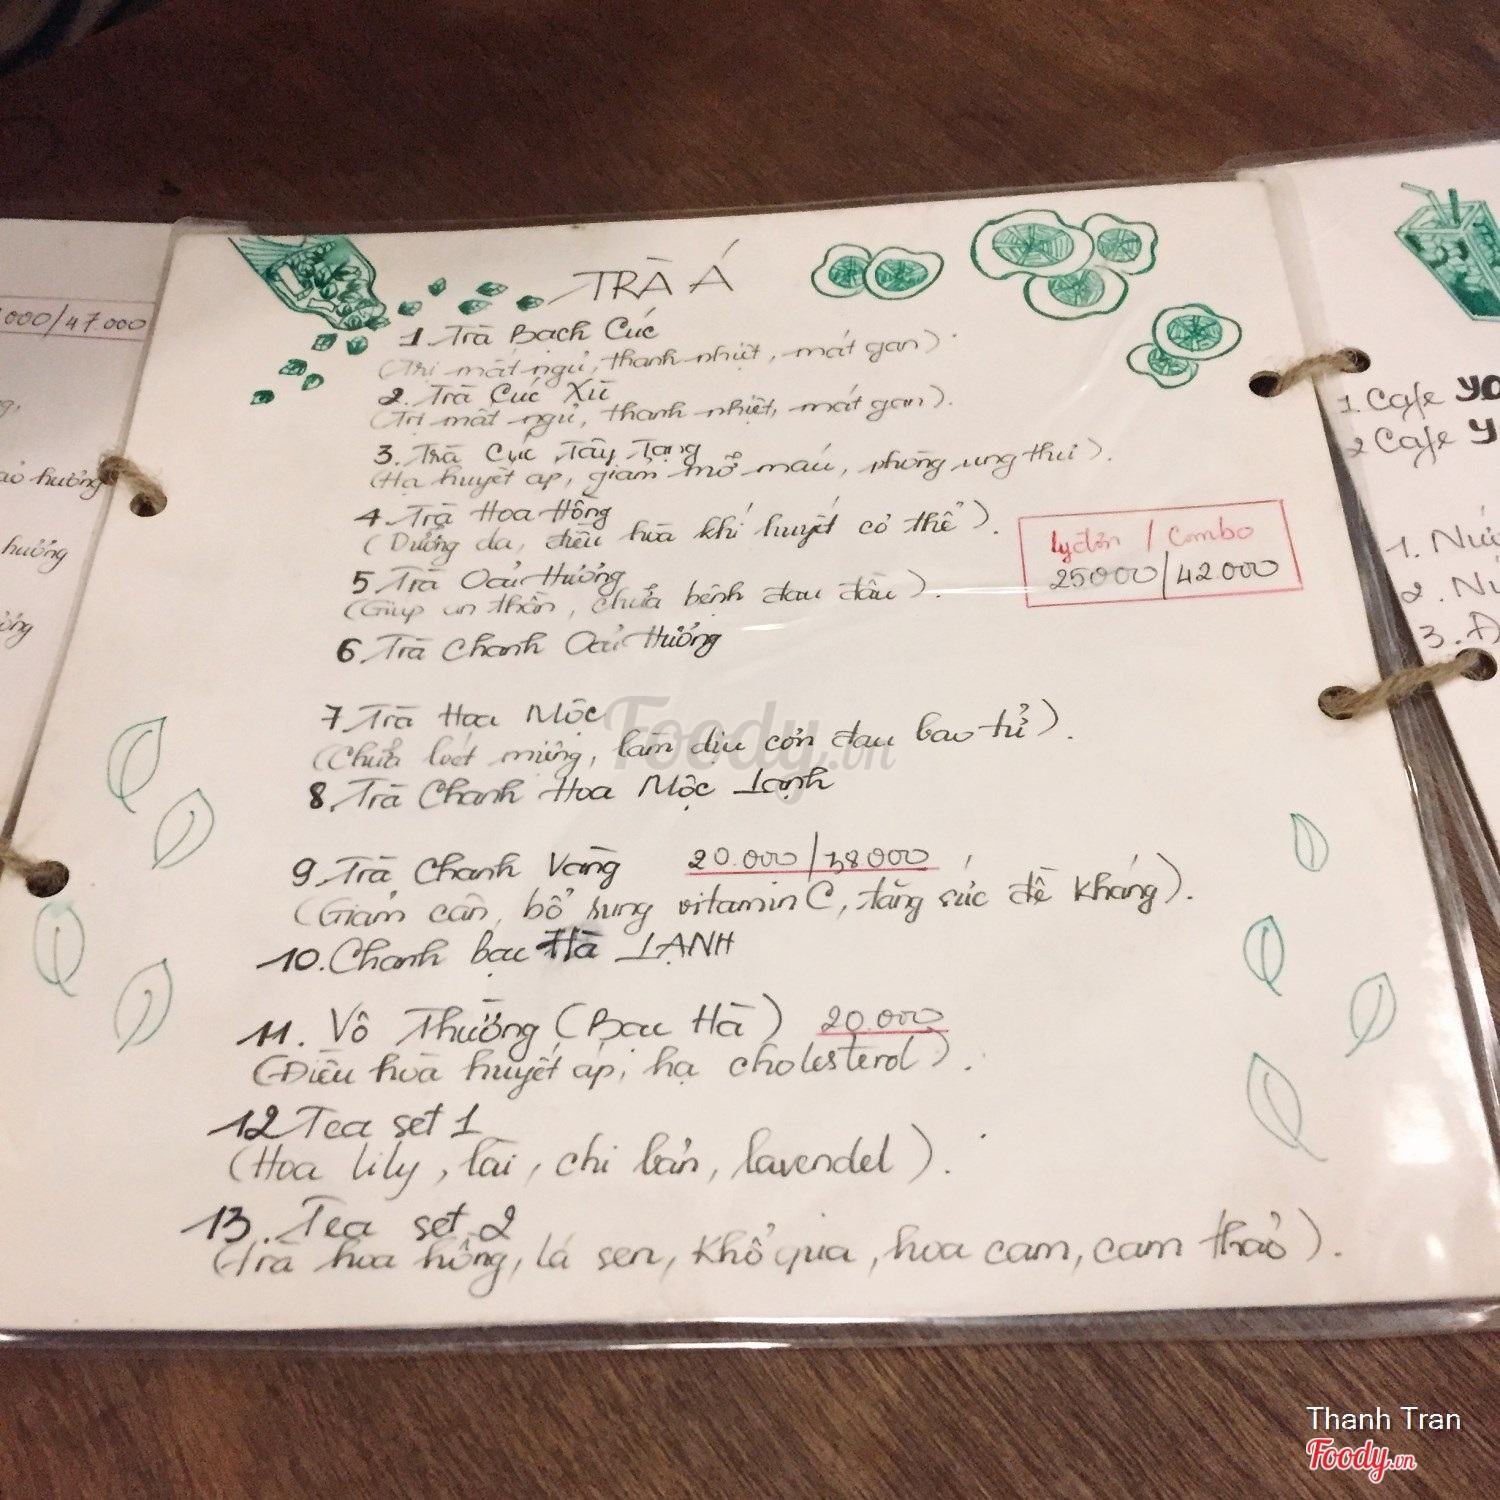 000/47.000
hưởng
hưởng
TRÀ Á
1. Trà Bạch Cúc
(Trị mất ngủ, thanh nhiệt, mát gan)
2. Trà Cúc Xù
(Trị mất ngủ, thanh nhiệt, mát gan).
3. Trà Cúc Tây Tạng
(Hạ huyết áp, giảm mỡ máu, phòng ung thư).
4. Trà Hoa Hồng
(Dưỡng da, điều hòa khí huyết cơ thể).
5. Trà Oải Hương
(Giúp an thần, chữa bệnh đau đầu).
6. Trà Chanh Oải Hương
ly đơn / Combo
25000/42.000
7. Trà Hoa Mộc
(Chữa loét miệng, làm dịu cơn đau bao tử).
8. Trà Chanh Hoa Mộc Lạnh
9. Trà Chanh Vàng 20.000/38000
(Giảm cân, bổ sung vitamin C, tăng sức đề kháng).
10. Chanh bạc Hà LẠNH
11. Vô Thường (Bạc Hà) 20.000
(Điều hòa huyết áp, hạ cholesterol).
12 Tea set 1
(Hoa lily, lài, chi lan, lavendel).
13. Tea set 2
(Trà hoa hồng, lá sen, Khổ qua, hoa cam, cam thảo).
1. Cafe
2 Cafe
1.
2.
3.
Foody.vn
Thanh Tran
Foody.vn